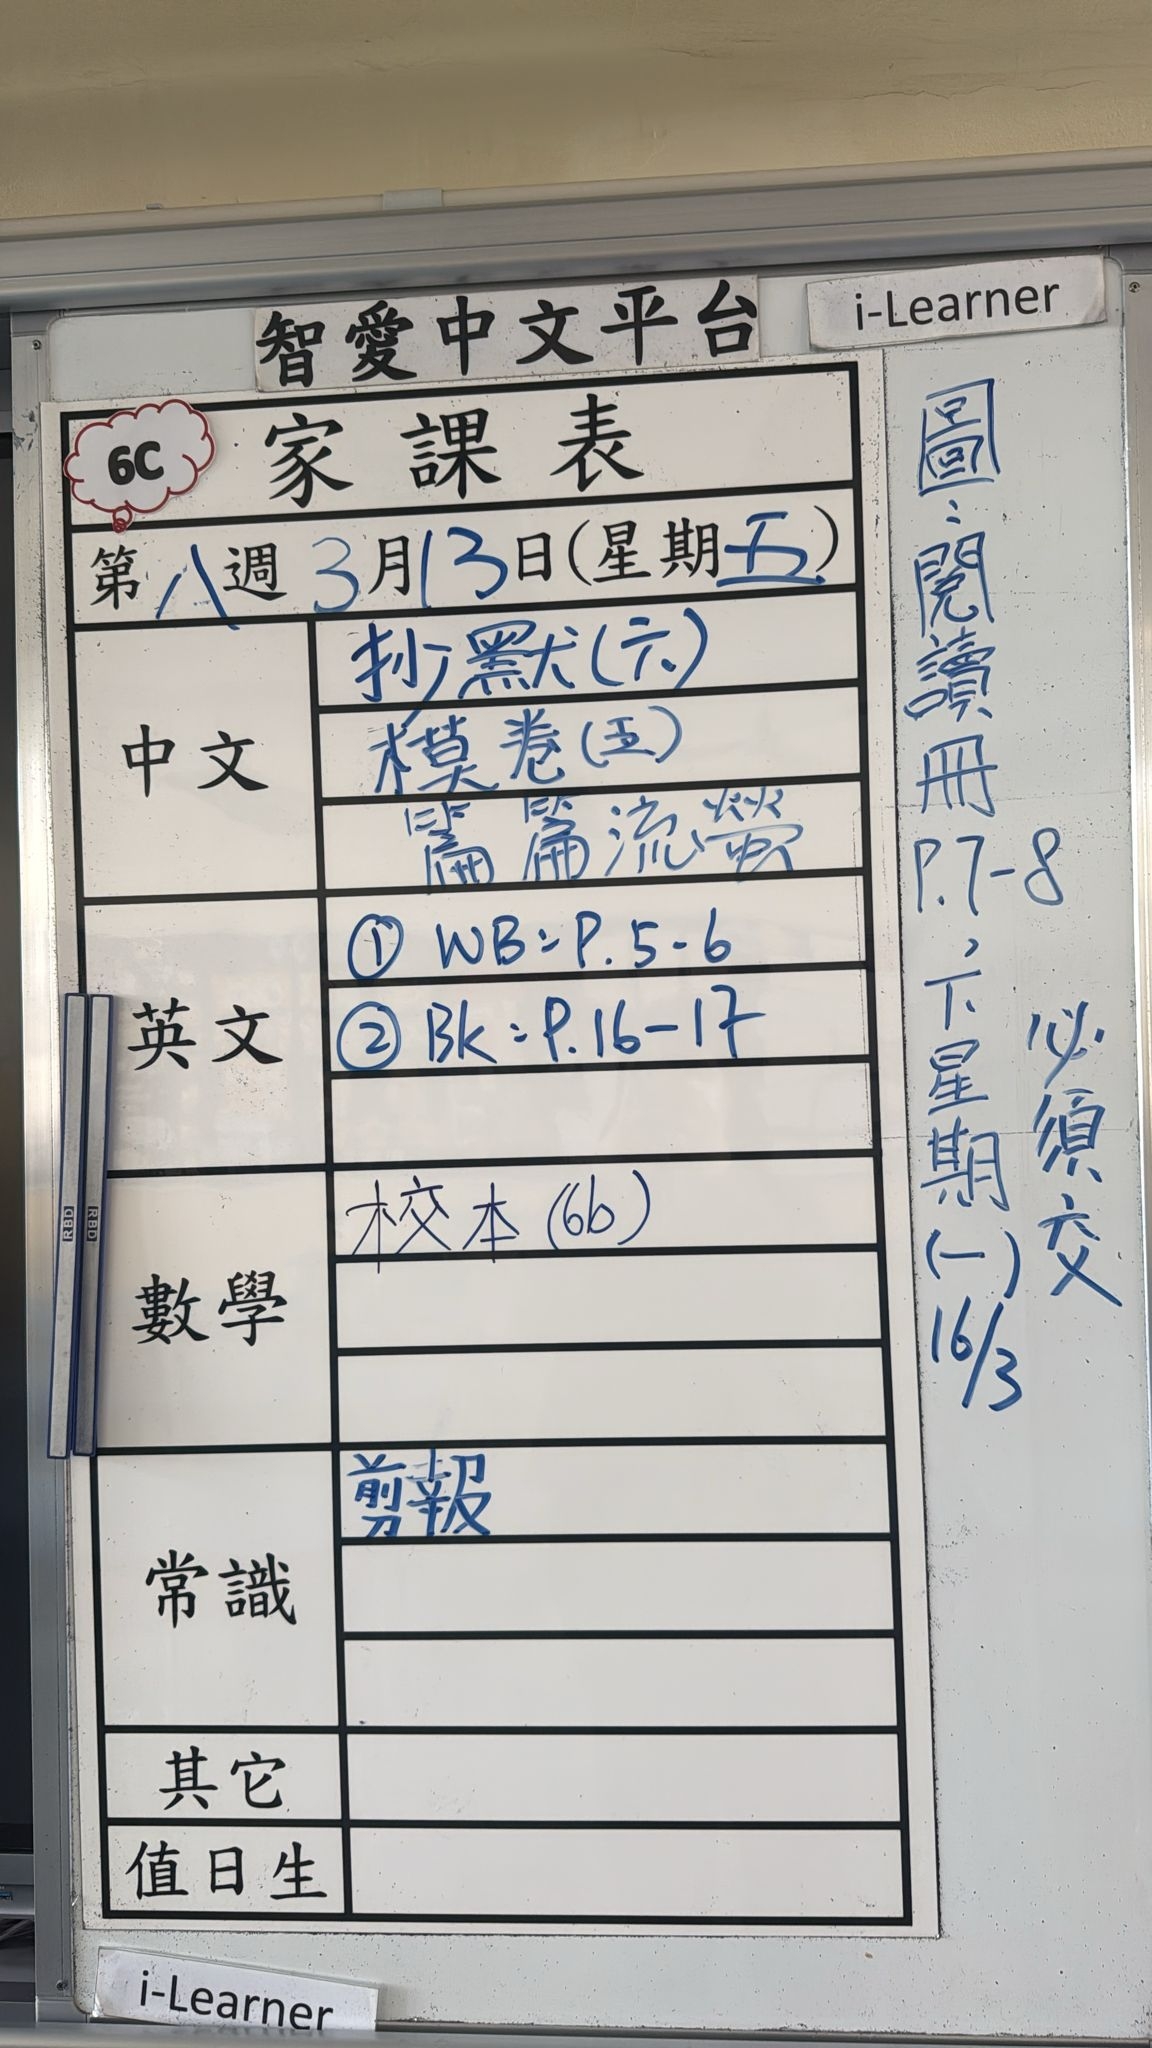 智愛中文平台
i-Learner
6C
家課表
第八週 3月13日(星期五)
中文
抄默(六)
模卷(五)
篇篇流螢
英文
① WB:P.5-6
② Bk:P.16-17
數學
校本(6b)
常識
剪報
其它
值日生
圖:閱讀冊P.7-8,下星期(一)16/3
必須交
RBD
RBD
i-Learner